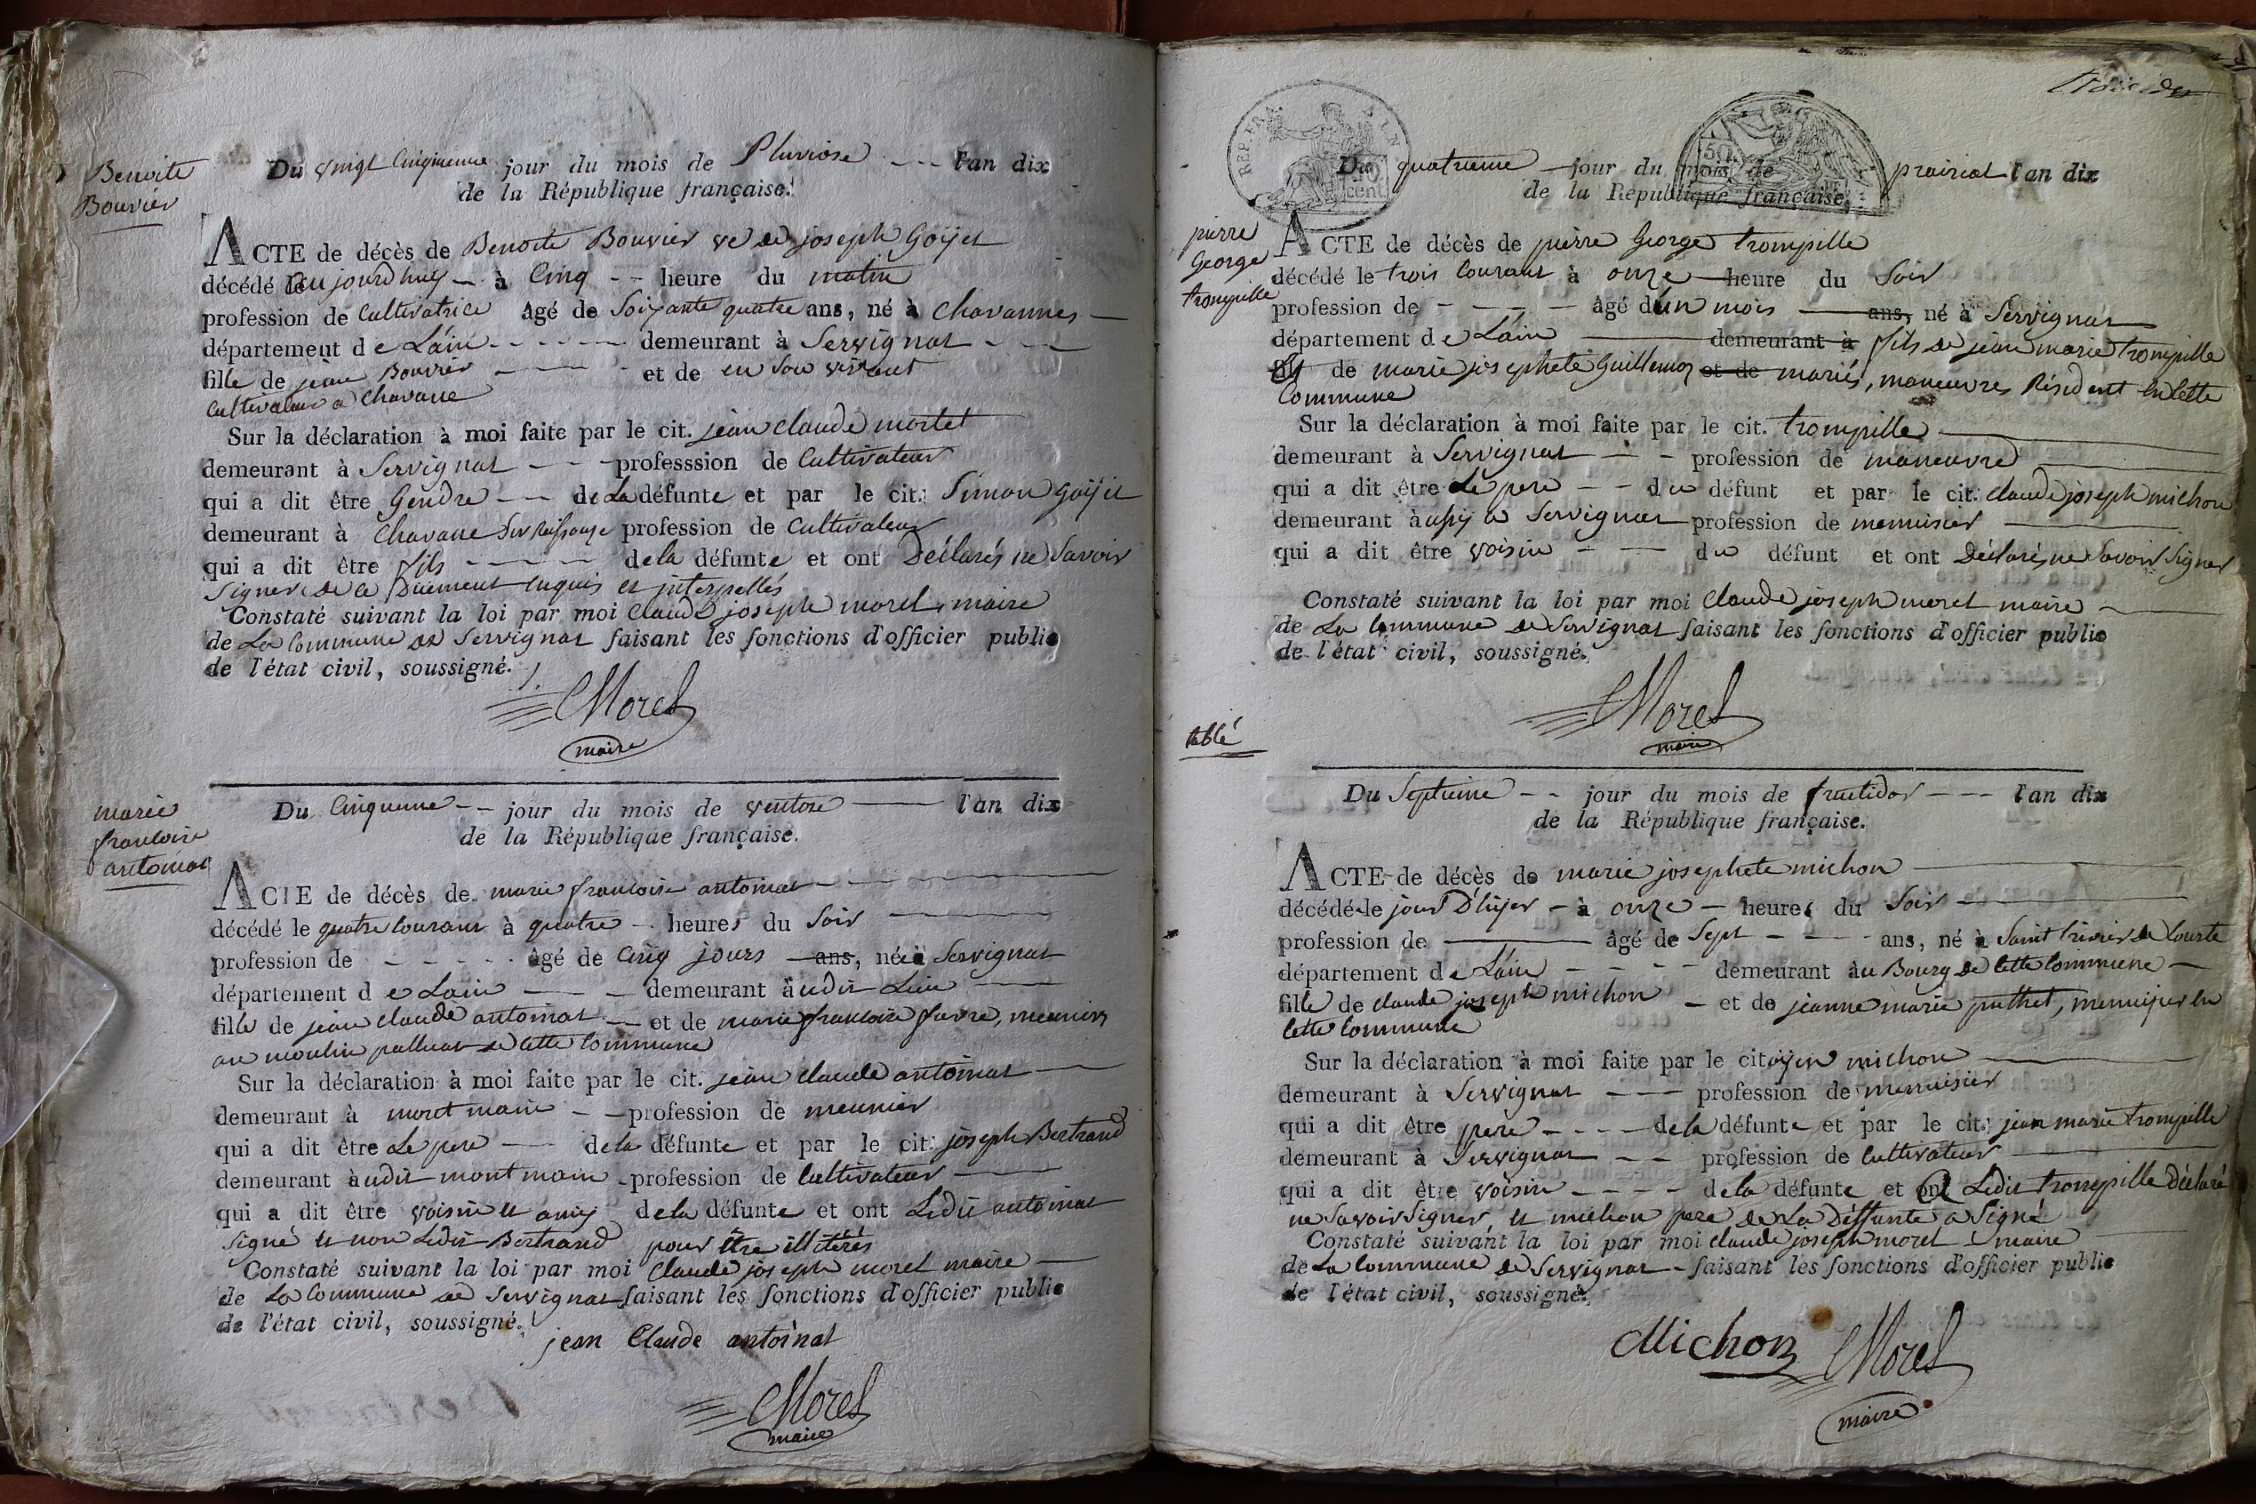 Benoite
Bouvier
Du vingt cinquieme jour du mois de Pluviose --- l'an dix
de la République française.
ACTE de décès de Benoite Bouvier ve de joseph Goÿet
décédé le aujourdhuy - à Cinq -- heure du matin
profession de Cultivatrice âgé de Soixante quatre ans, né à Chavannes -
département de L'ain ----- demeurant à Servignat ---
fille de jean Bouvier ---- et de en Son vivant
Cultivateur a Chavane
Sur la déclaration à moi faite par le cit. jean claude mortel
demeurant à Servignat --- professsion de Cultivateur
qui a dit être Gendre --- de La défunte et par le cit. Simon Goÿet
demeurant à Chavane Sur Reissouze profession de Cultivateur
qui a dit être fils ---- de la défunte et ont Déclarés ne Savoir
Signer de ce Duement enquis et interpellés
Constaté suivant la loi par moi Claude joseph morel, maire
de La Commune de Servignat faisant les fonctions d'officier public
de l'état civil, soussigné.
Morel
maire
marie
francoise
antoinat
Du Cinquieme -- jour du mois de ventose --- l'an dix
de la République française.
ACTE de décès de marie francoise antoinat
décédé le quatre Courant à quatre - heures du Soir
profession de ----- âgé de Cinq jours ans, née à Servignat
département de Lain --- demeurant àudit Lieu
fille de jean claude antoinat - et de marie francoise favre, meuniers
au moulin palluat de Cette Commune
Sur la déclaration à moi faite par le cit. jean claude antoinat
demeurant à mont main -- profession de meunier
qui a dit être Le pere --- de la défunte et par le cit. joseph Bertrand
demeurant àudit mont main - profession de Cultivateur
qui a dit être voisin et amy de la défunte et ont Ledit antoinat
Signé et non Ledit Bertrand pour être illitérés
Constaté suivant la loi par moi Claude joseph morel maire
de La Commune de Servignat faisant les fonctions d'officier public
de l'état civil, soussigné.
jean Claude antoinat
Morel
maire
REP. FRA.
50
cent
Du quatrieme jour du mois de prairial l'an dix
de la République française.
pierre
George
trompille
ACTE de décès de pierre George trompille
décédé le trois Courant à onze heure du Soir
profession de ---- âgé d'un mois ans, né à Servignat
département de L'ain demeurant à fils de jean marie trompille
et de marie josephete Guillemoz et de mariés, maneuvres Résident en Cette
Commune
Sur la déclaration à moi faite par le cit. trompille
demeurant à Servignat --- profession de maneuvre
qui a dit être Le pere --- du défunt et par le cit. claude joseph michon
demeurant àussy a Servignat profession de menuisier
qui a dit être voisin --- du défunt et ont Déclarés ne Savoir Signer
Constaté suivant la loi par moi Claude joseph morel maire
de La Commune de Servignat faisant les fonctions d'officier public
de l'état civil, soussigné.
Morel
maire
tablé
Du Septieme -- jour du mois de fructidor --- l'an dix
de la République française.
ACTE de décès de marie josephete michon
décédé le jour D'hÿer - à onze - heures du Soir
profession de âgé de Sept --- ans, né à Saint trivier de Courte
département de L'ain ---- demeurant àu Bourg de Cette Commune -
fille de claude joseph michon - et de jeanne marie puthet, menuisier en
Cette Commune
Sur la déclaration à moi faite par le citoÿen michon
demeurant à Servignat --- profession de menuisier
qui a dit être pere ---- de la défunte et par le cit. jean marie trompille
demeurant à Servignat -- profession de Cultivateur
qui a dit être voisin ---- de la défunte et ont Ledit trompille Déclaré
ne Savoir Signer, et michon pere de La Déffunte a Signé
Constaté suivant la loi par moi claude joseph morel maire
de La Commune de Servignat - faisant les fonctions d'officier public
de l'état civil, soussigné.
Michon Morel
maire